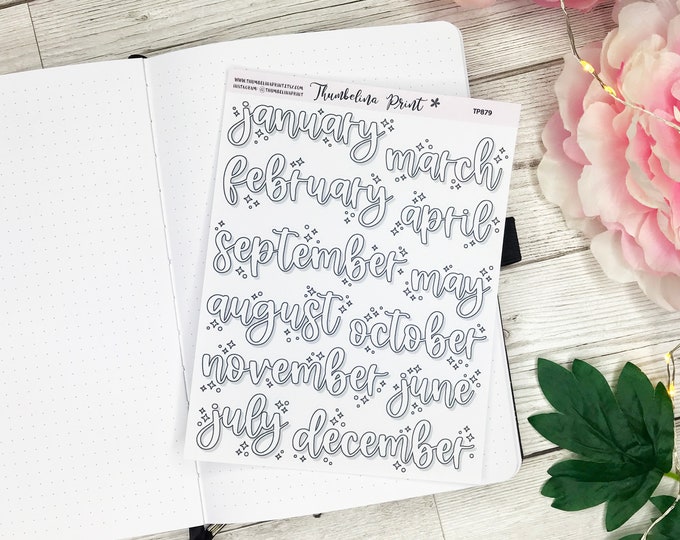 WWW.THUMBELINAPRINT.ETSY.COM
INSTAGRAM @THUMBELINAPRINT
Thumbelina Print
TP879
january
march
february
april
september
may
august
october
november
june
july
december